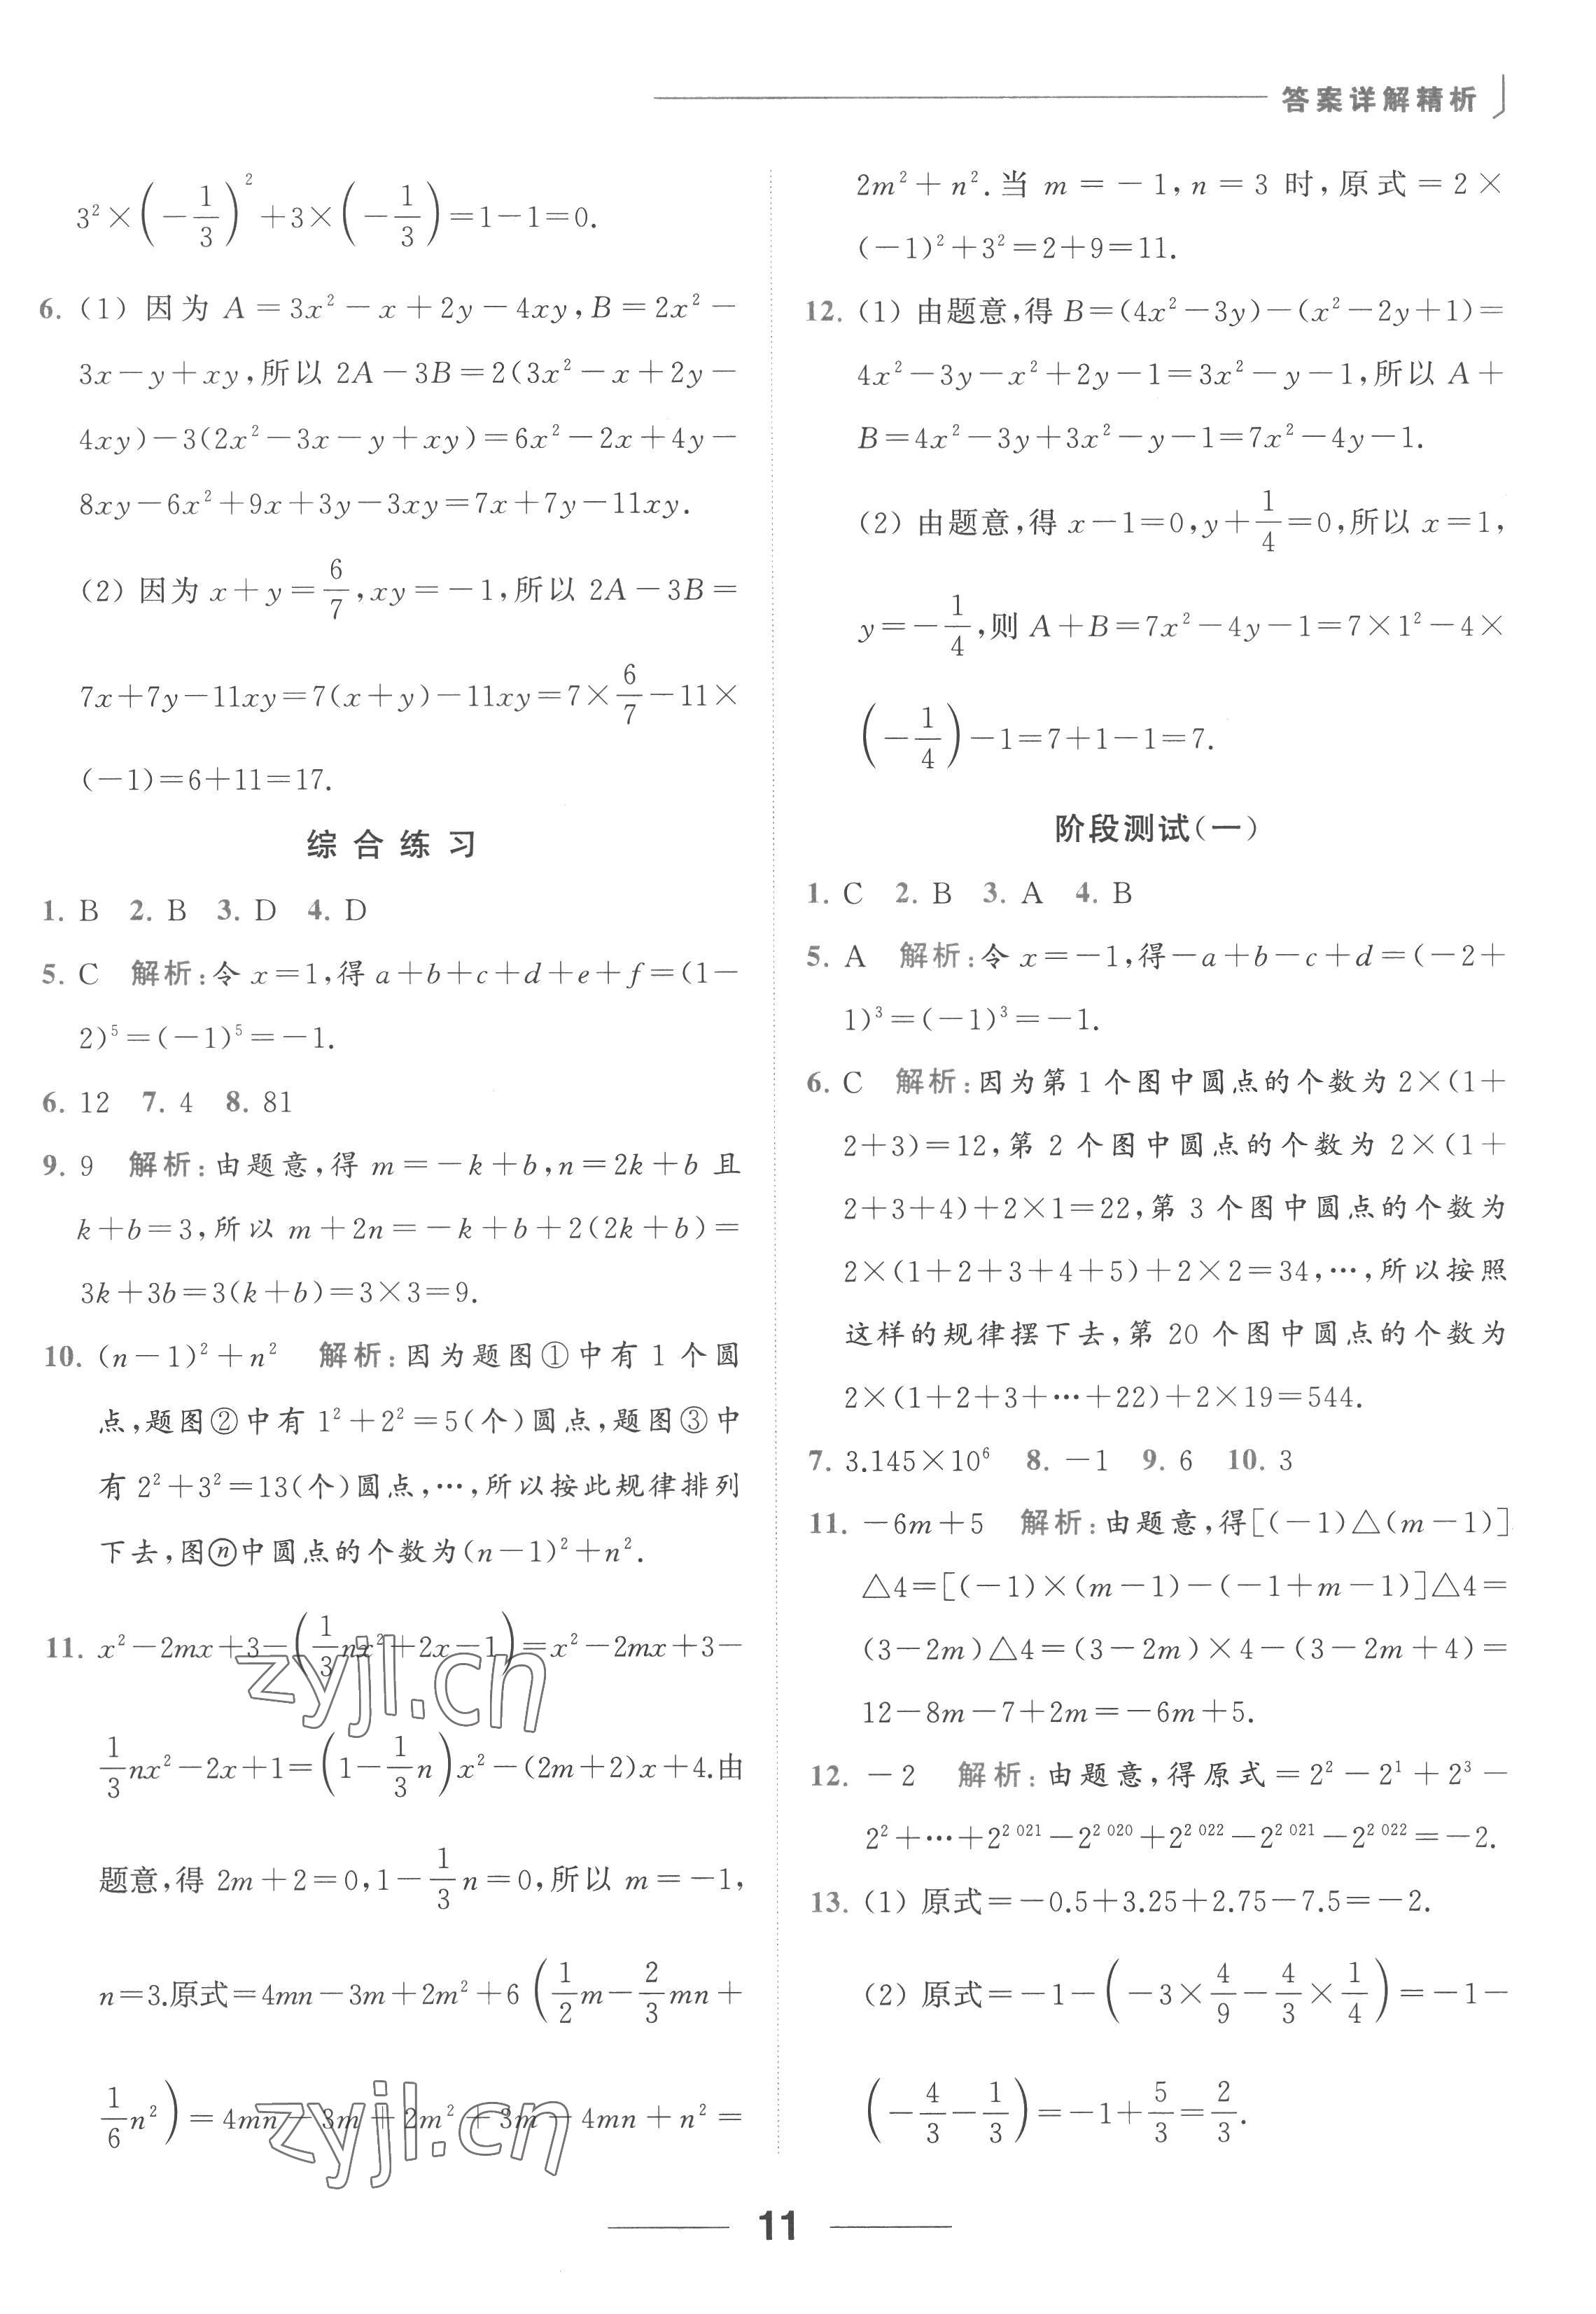 答案详解精析
3²×(-1/3)²+3×(-1/3)=1-1=0.
6. (1) 因为 A=3x²-x+2y-4xy,B=2x²-
3x-y+xy,所以 2A-3B=2(3x²-x+2y-
4xy)-3(2x²-3x-y+xy)=6x²-2x+4y-
8xy-6x²+9x+3y-3xy=7x+7y-11xy.
(2) 因为 x+y=6/7,xy=-1,所以 2A-3B=
7x+7y-11xy=7(x+y)-11xy=7×6/7-11×
(-1)=6+11=17.
综合练习
1. B 2. B 3. D 4. D
5. C 解析:令 x=1,得 a+b+c+d+e+f=(1-
2)⁵=(-1)⁵=-1.
6. 12 7. 4 8. 81
9. 9 解析:由题意,得 m=-k+b,n=2k+b 且
k+b=3,所以 m+2n=-k+b+2(2k+b)=
3k+3b=3(k+b)=3×3=9.
10. (n-1)²+n² 解析:因为题图①中有 1 个圆
点,题图②中有 1²+2²=5(个)圆点,题图③中
有 2²+3²=13(个)圆点,…,所以按此规律排列
下去,图ⓝ中圆点的个数为(n-1)²+n².
11. x²-2mx+3-(1/3nx²+2x-1)=x²-2mx+3-
1/3nx²-2x+1=(1-1/3n)x²-(2m+2)x+4.由
题意,得 2m+2=0,1-1/3n=0,所以 m=-1,
n=3.原式=4mn-3m+2m²+6(1/2m-2/3mn+
1/6n²)=4mn-3m+2m²+3m-4mn+n²=
zyjl.cn
zyjl.cn
2m²+n².当 m=-1,n=3 时,原式=2×
(-1)²+3²=2+9=11.
12. (1) 由题意,得 B=(4x²-3y)-(x²-2y+1)=
4x²-3y-x²+2y-1=3x²-y-1,所以 A+
B=4x²-3y+3x²-y-1=7x²-4y-1.
(2) 由题意,得 x-1=0,y+1/4=0,所以 x=1,
y=-1/4,则 A+B=7x²-4y-1=7×1²-4×
(-1/4)-1=7+1-1=7.
阶段测试(一)
1. C 2. B 3. A 4. B
5. A 解析:令 x=-1,得-a+b-c+d=(-2+
1)³=(-1)³=-1.
6. C 解析:因为第 1 个图中圆点的个数为 2×(1+
2+3)=12,第 2 个图中圆点的个数为 2×(1+
2+3+4)+2×1=22,第 3 个图中圆点的个数为
2×(1+2+3+4+5)+2×2=34,…,所以按照
这样的规律摆下去,第 20 个图中圆点的个数为
2×(1+2+3+…+22)+2×19=544.
7. 3.145×10⁶ 8. -1 9. 6 10. 3
11. -6m+5 解析:由题意,得[(-1)△(m-1)]
△4=[(-1)×(m-1)-(-1+m-1)]△4=
(3-2m)△4=(3-2m)×4-(3-2m+4)=
12-8m-7+2m=-6m+5.
12. -2 解析:由题意,得原式=2²-2¹+2³-
2²+…+2²⁰²¹-2²⁰²⁰+2²⁰²²-2²⁰²¹-2²⁰²²=-2.
13. (1) 原式=-0.5+3.25+2.75-7.5=-2.
(2) 原式=-1-(-3×4/9-4/3×1/4)=-1-
(-4/3-1/3)=-1+5/3=2/3.
11